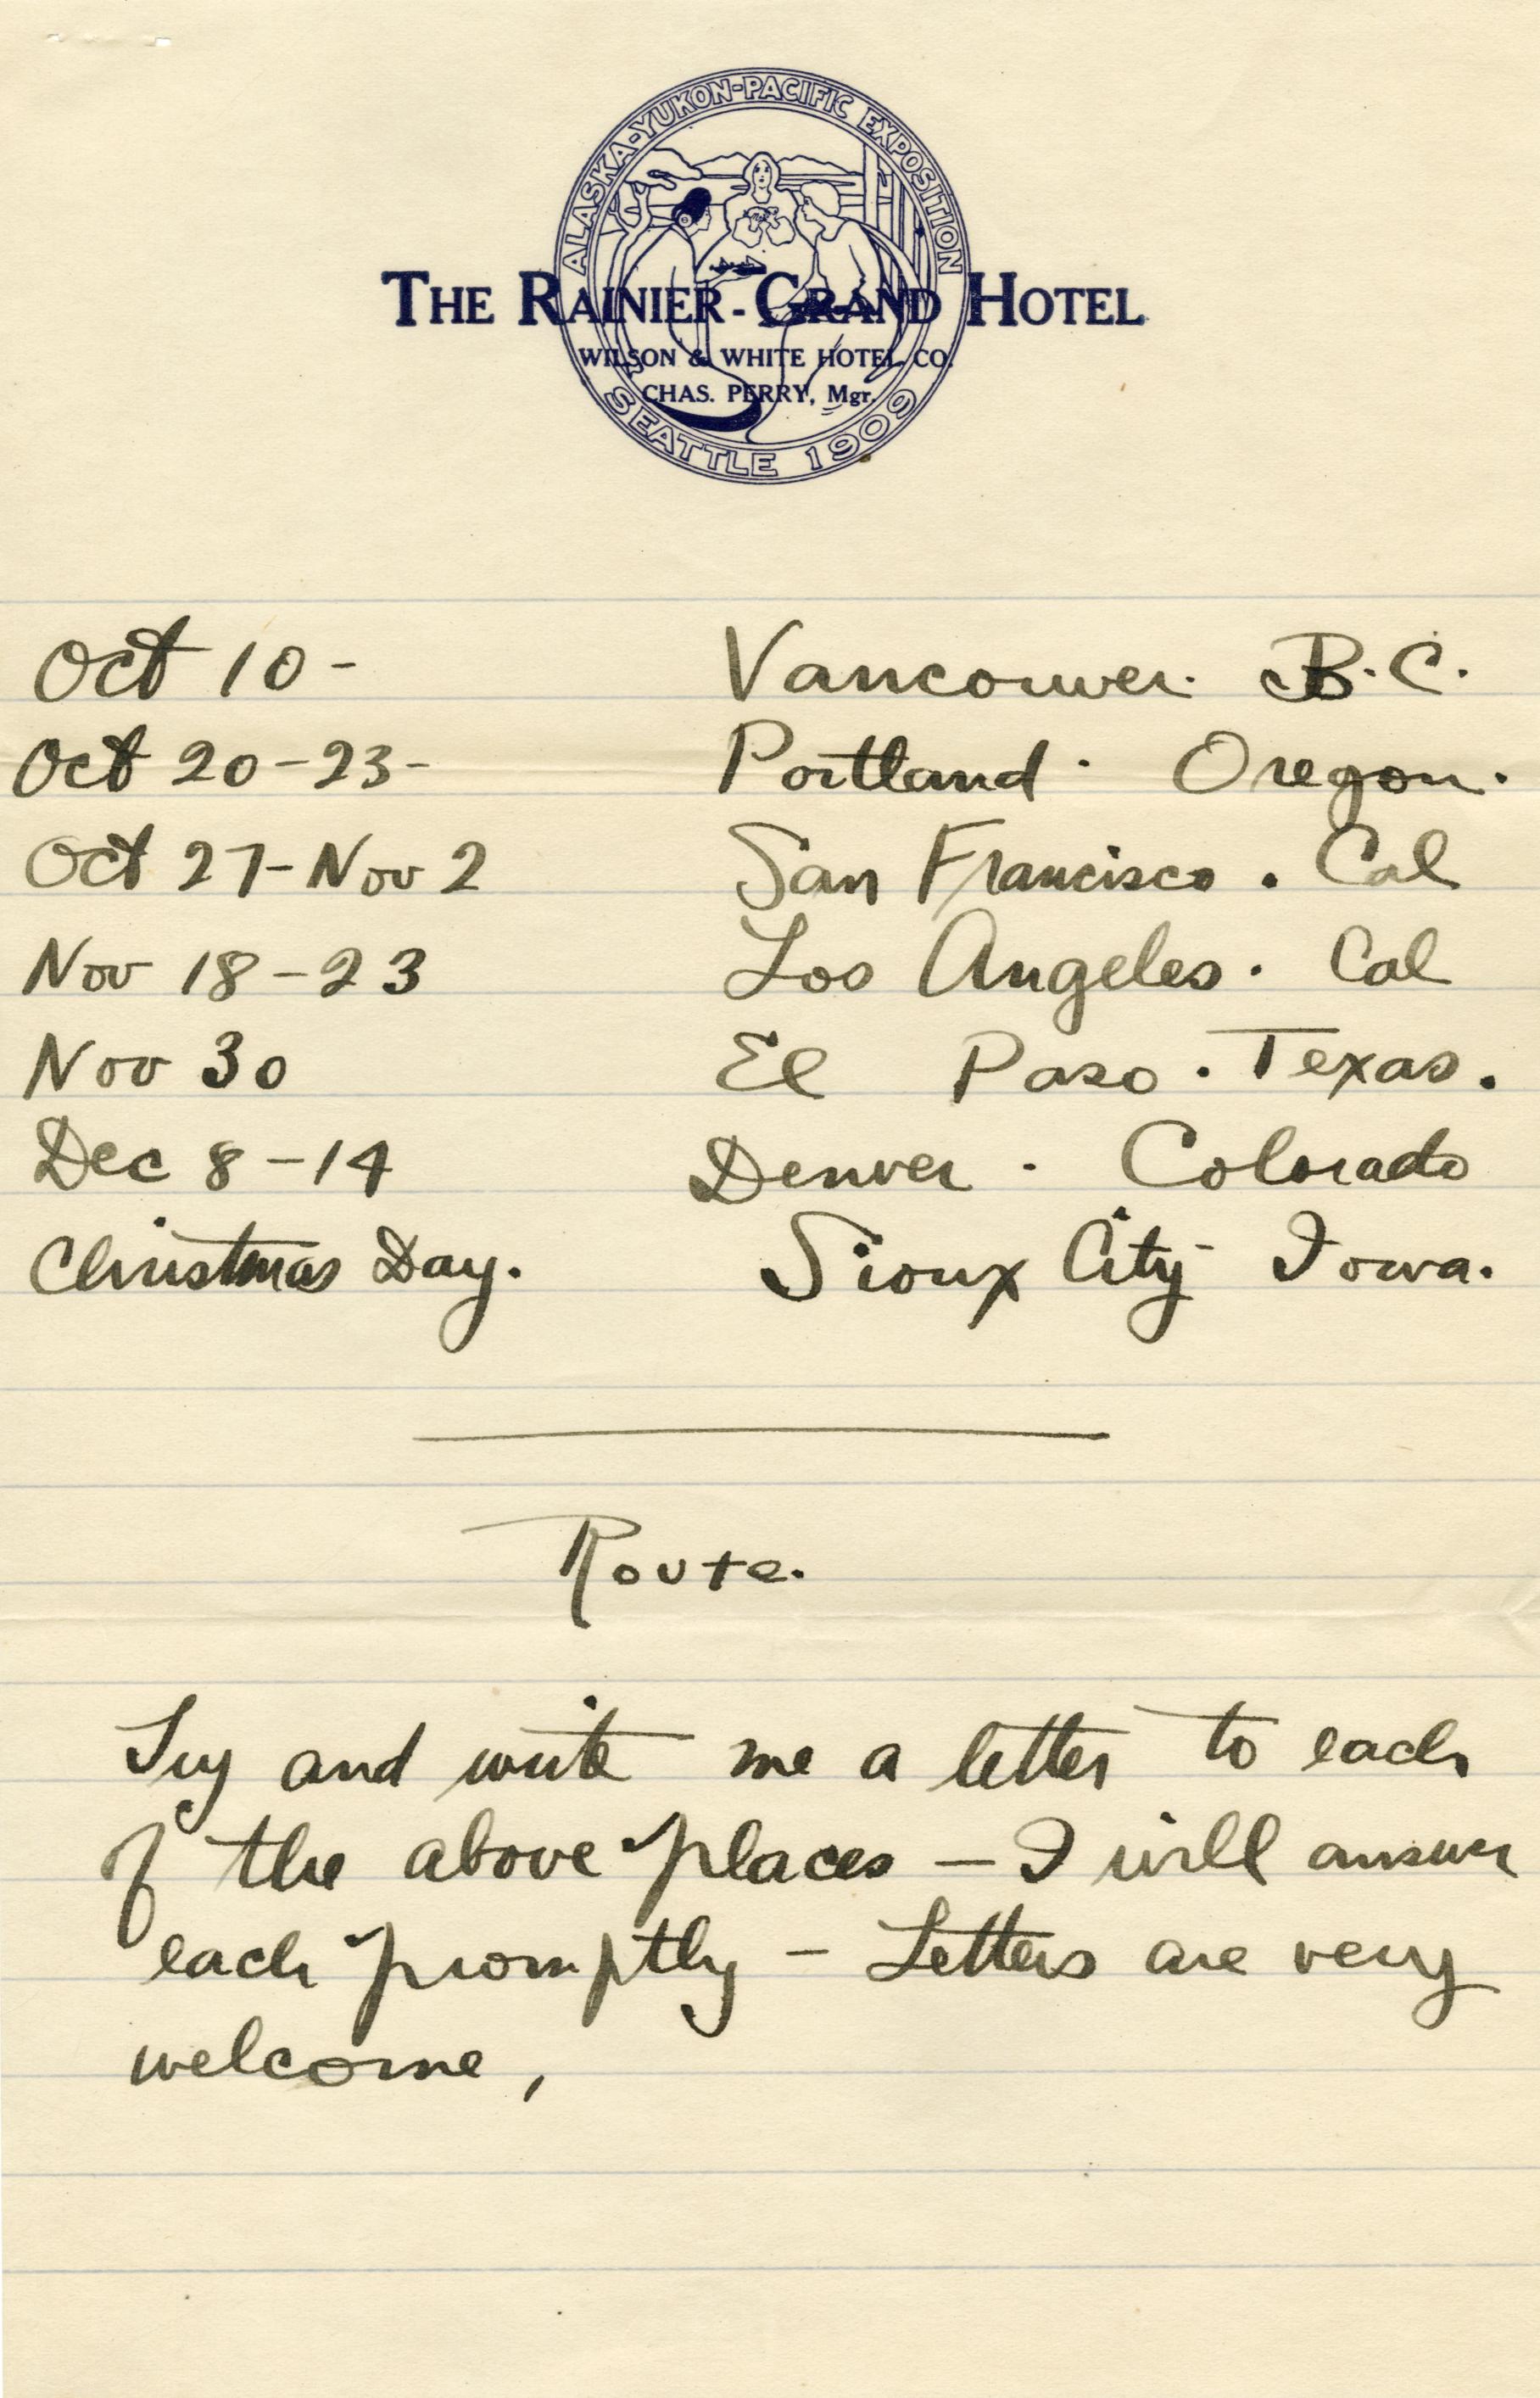 ALASKA-YUKON-PACIFIC EXPOSITION
THE RAINIER-GRAND HOTEL
WILSON & WHITE HOTEL CO.
CHAS. PERRY, Mgr.
SEATTLE 1909
Oct 10- Vancouver. B.C.
Oct 20-23- Portland. Oregon.
Oct 27-Nov 2 San Francisco. Cal
Nov 18-23 Los Angeles. Cal
Nov 30 El Paso. Texas.
Dec 8-14 Denver. Colorado
Christmas Day. Sioux City Iowa.
Route.
Try and write me a letter to each
of the above places — I will answer
each promptly — Letters are very
welcome,